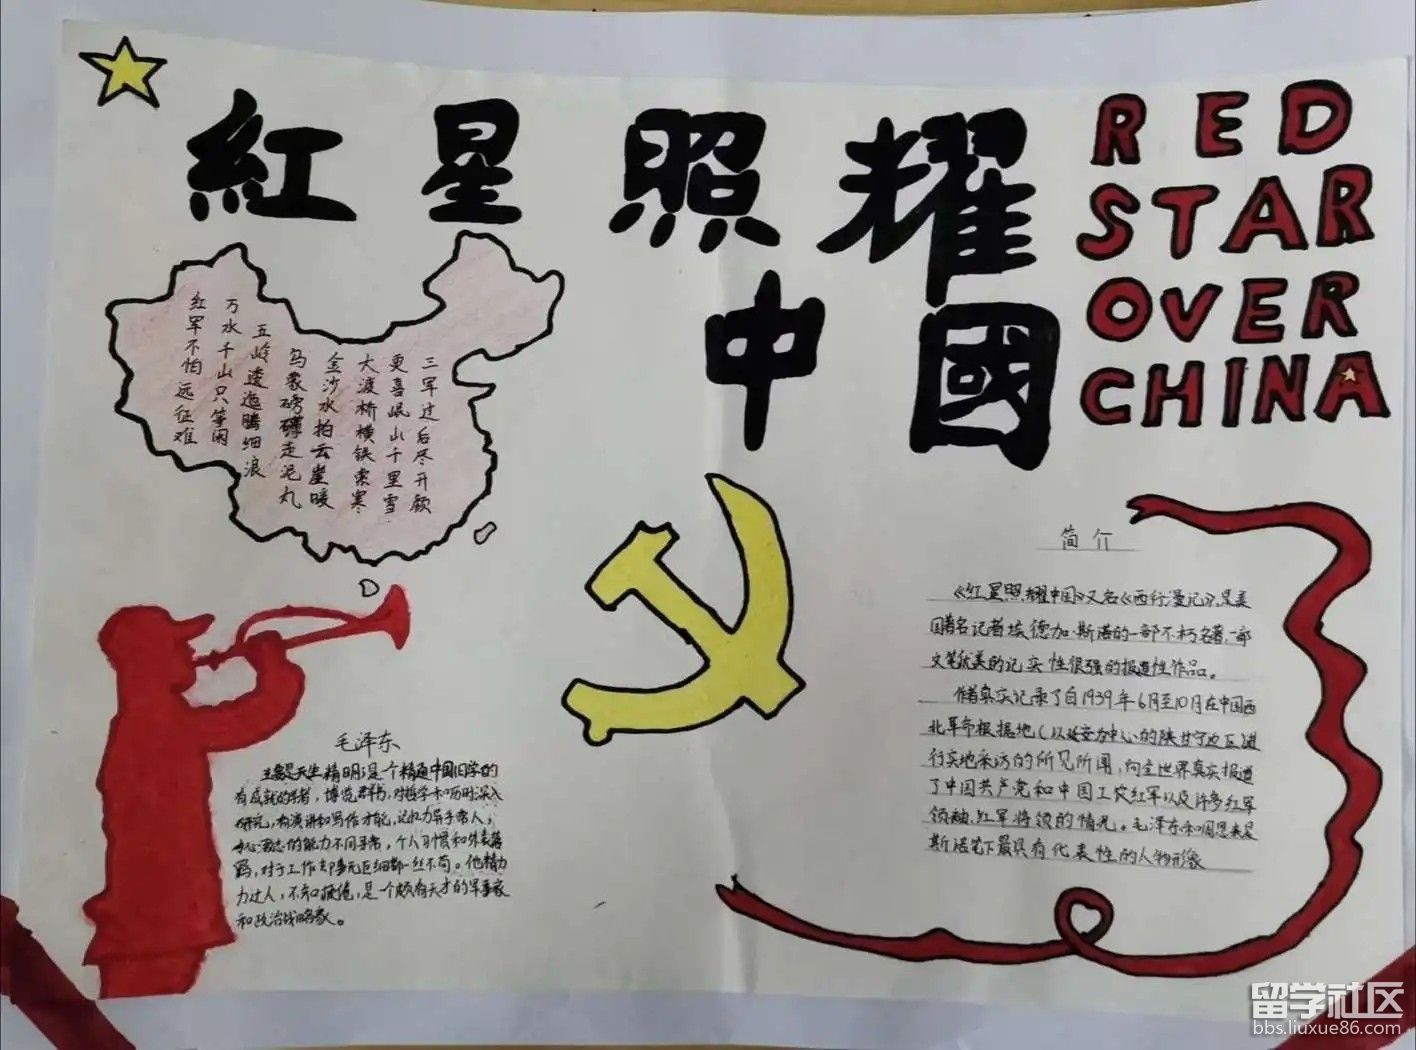 紅星照耀
中國
RED
STAR
OVER
CHINA
红军不怕远征难
万水千山只等闲
五岭逶迤腾细浪
乌蒙磅礴走泥丸
金沙水拍云崖暖
大渡桥横铁索寒
更喜岷山千里雪
三军过后尽开颜
毛泽东
天生精明是一个精通中国旧学的
有成就的学者，博览群书，对哲学和历史深入
研究，有演讲和写作才能，记忆力异乎常人，
专心致志的能力不同寻常，个人习惯和外表落
，对于工作却事无巨细都一丝不苟。他精力
力过人，不知疲倦，是一个颇有天才的军事家
和政治战略家。
简介
《红星照耀中国》又名《西行漫记》，是美
国著名记者埃德加·斯诺的一部不朽名著，一部
文笔优美的记实性很强的报道性作品。
作者真实记录了自1939年6月至10月在中国西
北革命根据地（以延安为中心的陕甘宁边区）进
行实地采访的所见所闻，向全世界真实报道
了中国共产党和中国工农红军以及许多红军
领袖、红军将领的情况。毛泽东和周恩来是
斯诺笔下最具有代表性的人物形象
留学社区
bbs.liuxue86.com